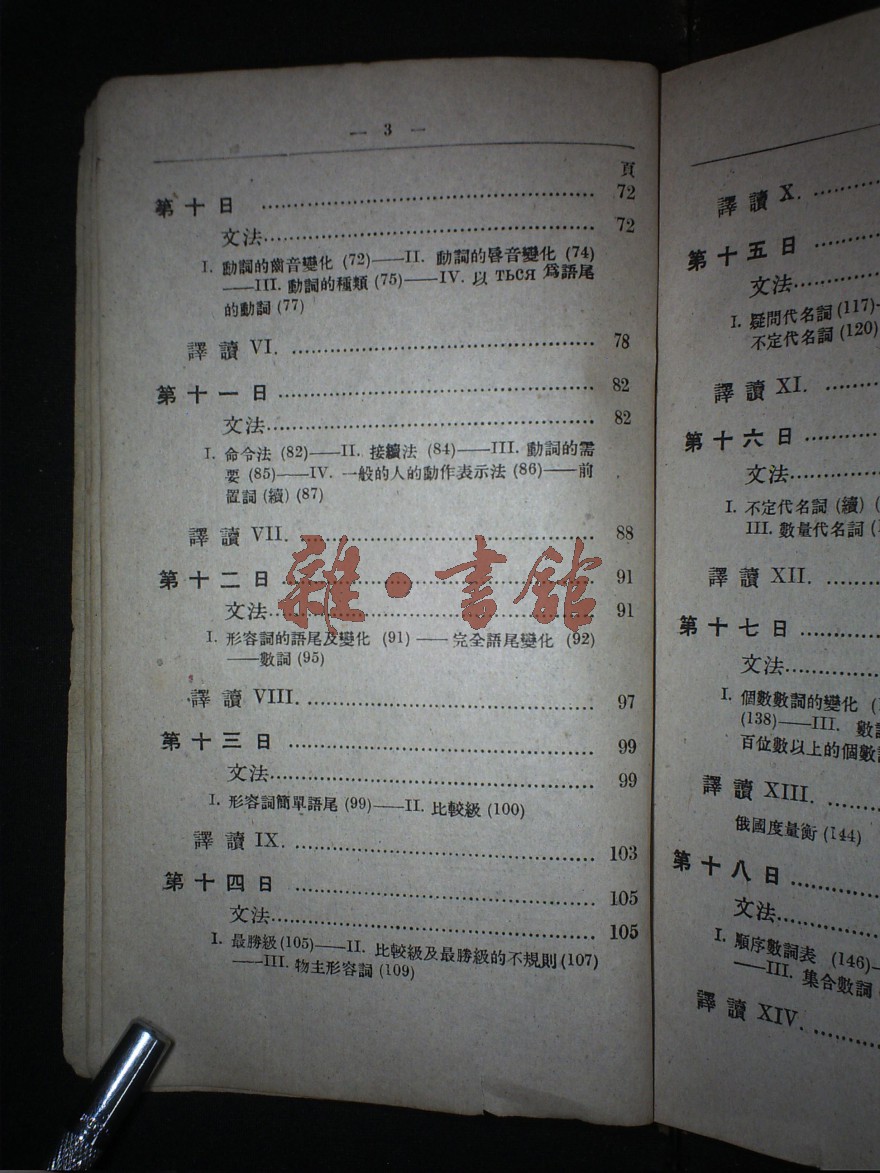 — 3 —
頁
第十日 ........ 72
文法 ........ 72
I. 動詞的齒音變化 (72)——II. 動詞的唇音變化 (74)
——III. 動詞的種類 (75)——IV. 以 ться 爲語尾
的動詞 (77)
譯讀 VI. ........ 78
第十一日 ........ 82
文法 ........ 82
I. 命令法 (82)——II. 接續法 (84)——III. 動詞的需
要 (85)——IV. 一般的人的動作表示法 (86)——前
置詞 (續) (87)
譯讀 VII. ........ 88
第十二日 ........ 91
文法 ........ 91
I. 形容詞的語尾及變化 (91) ——完全語尾變化 (92)
——數詞 (95)
譯讀 VIII. ........ 97
第十三日 ........ 99
文法 ........ 99
I. 形容詞簡單語尾 (99)——II. 比較級 (100)
譯讀 IX. ........ 103
第十四日 ........ 105
文法 ........ 105
I. 最勝級 (105)——II. 比較級及最勝級的不規則 (107)
——III. 物主形容詞 (109)
雜·書館
譯讀 X. ........
第十五日 ........
文法 ........
I. 疑問代名詞 (117)-
不定代名詞 (120)
譯讀 XI. ........
第十六日 ........
文法 ........
I. 不定代名詞 (續) (
III. 數量代名詞 (
譯讀 XII. ........
第十七日 ........
文法 ........
I. 個數數詞的變化 (
(138)——III. 數
百位數以上的個數
譯讀 XIII. ........
俄國度量衡 (144)
第十八日 ........
文法 ........
I. 順序數詞表 (146)—
——III. 集合數詞
譯讀 XIV. ........